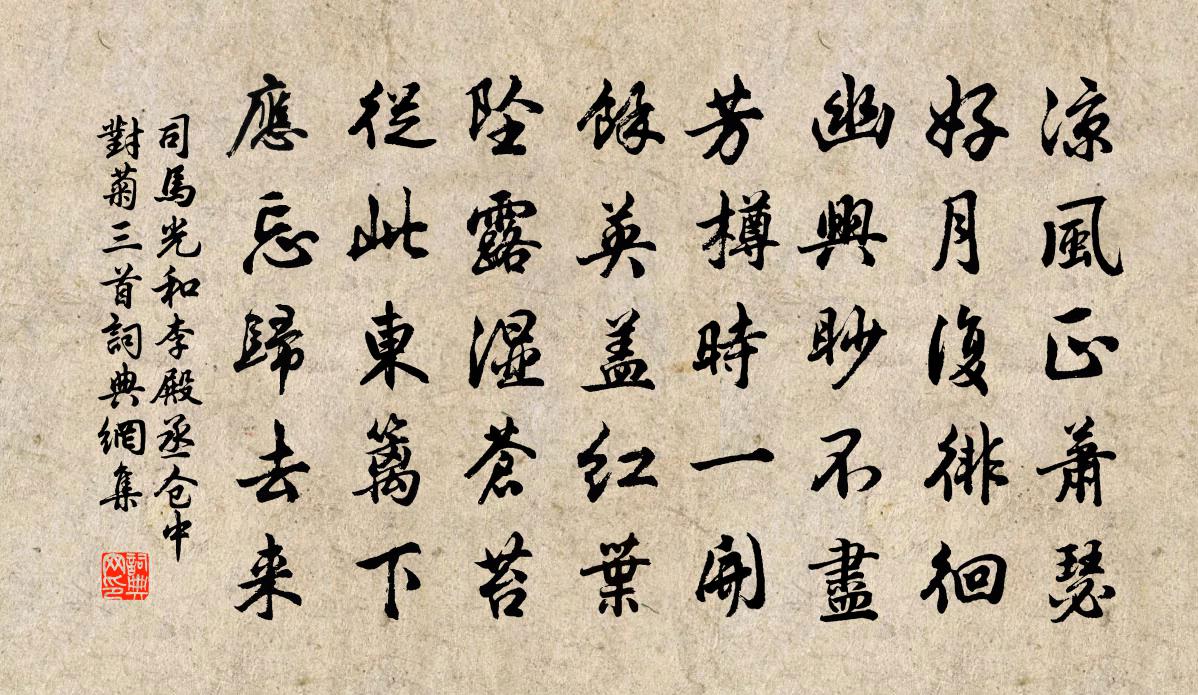 凉風正萧瑟
好月復徘徊
幽興眇不盡
芳樽時一開
餘英盖紅葉
坠露濕蒼苔
從此東篱下
應忘歸去来
司馬光和李殿丞仓中
對菊三首詞典網集
詞典网印